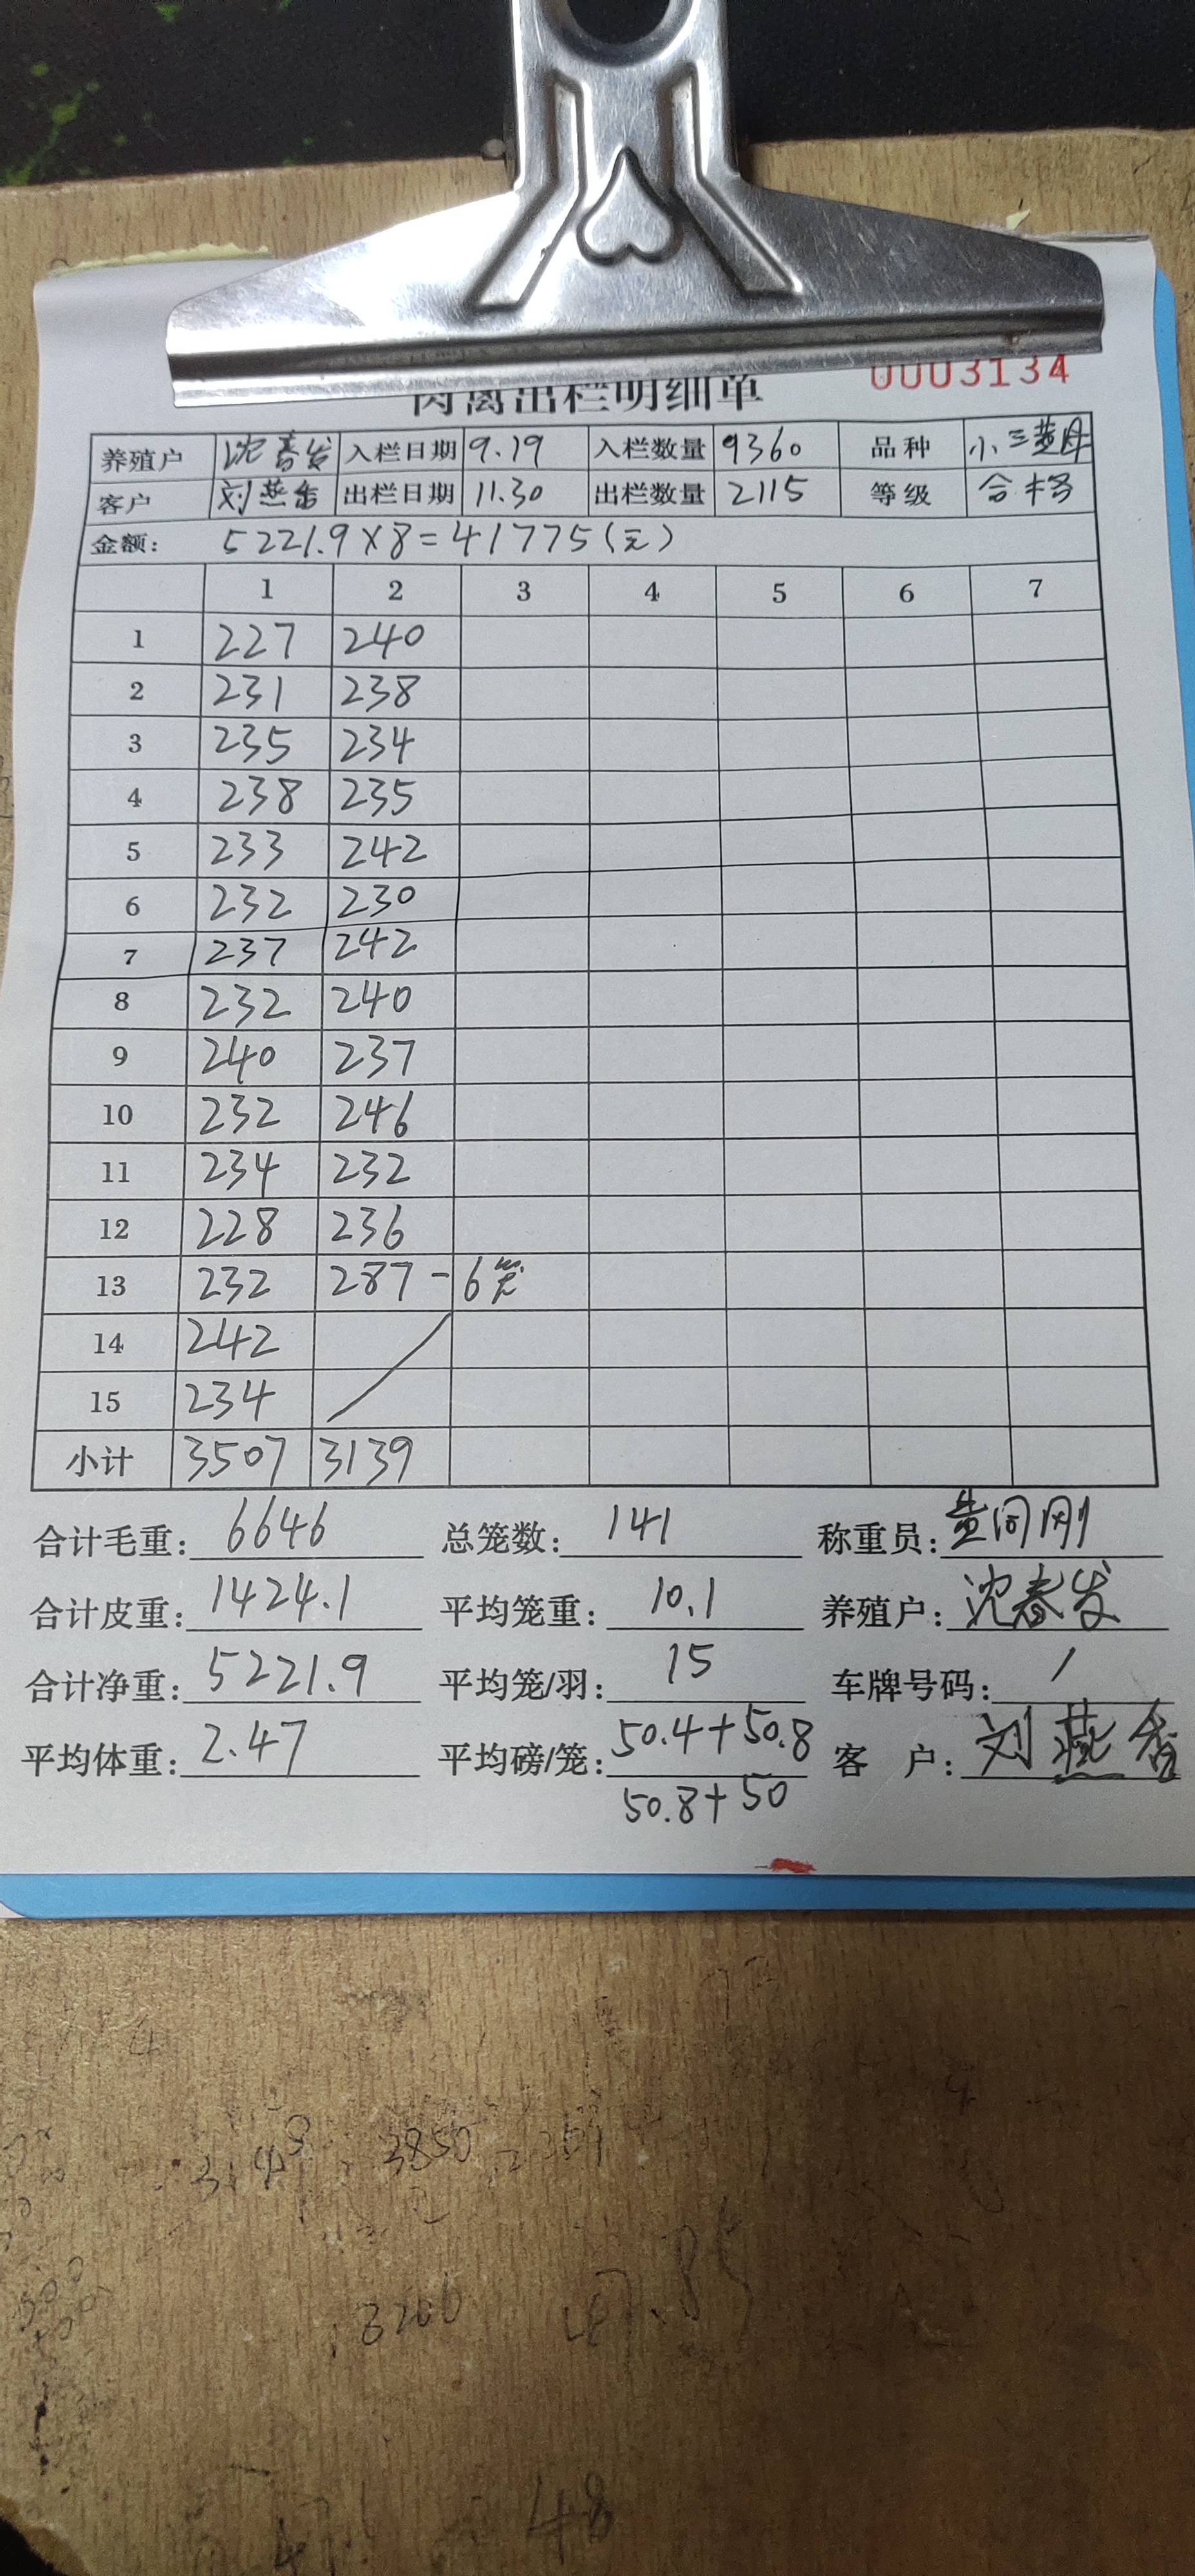 肉禽出栏明细单 0003134
养殖户 沈春发 入栏日期 9.19 入栏数量 9360 品种 小三黄母
客户 刘燕香 出栏日期 11.30 出栏数量 2115 等级 合格
金额: 5221.9×8=41775(元)
1 2 3 4 5 6 7
1 227 240
2 231 238
3 235 234
4 238 235
5 233 242
6 232 230
7 237 242
8 232 240
9 240 237
10 232 246
11 234 232
12 228 236
13 232 287 - 6笼
14 242
15 234
小计 3507 3139
合计毛重: 6646 总笼数: 141 称重员: 黄同刚
合计皮重: 1424.1 平均笼重: 10.1 养殖户: 沈春发
合计净重: 5221.9 平均笼/羽: 15 车牌号码: /
平均体重: 2.47 平均磅/笼: 50.4+50.8 客 户: 刘燕香
50.8+50
3850
3200
48